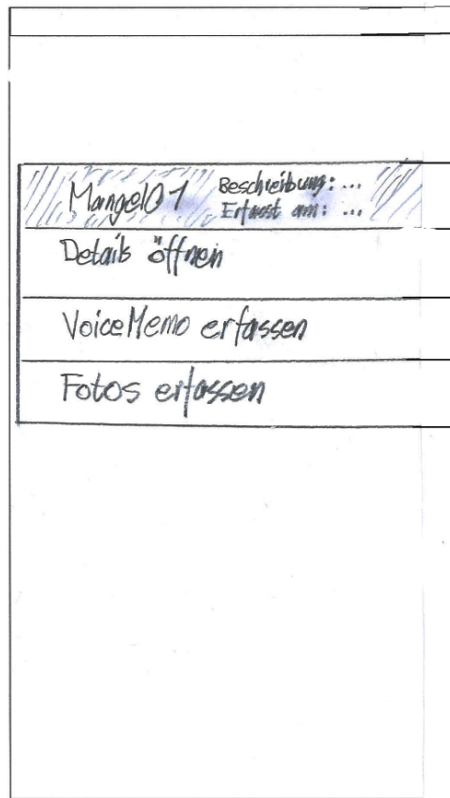 Mangel01
Beschreibung: ...
Erfasst am: ...
Details öffnen
VoiceMemo erfassen
Fotos erfassen